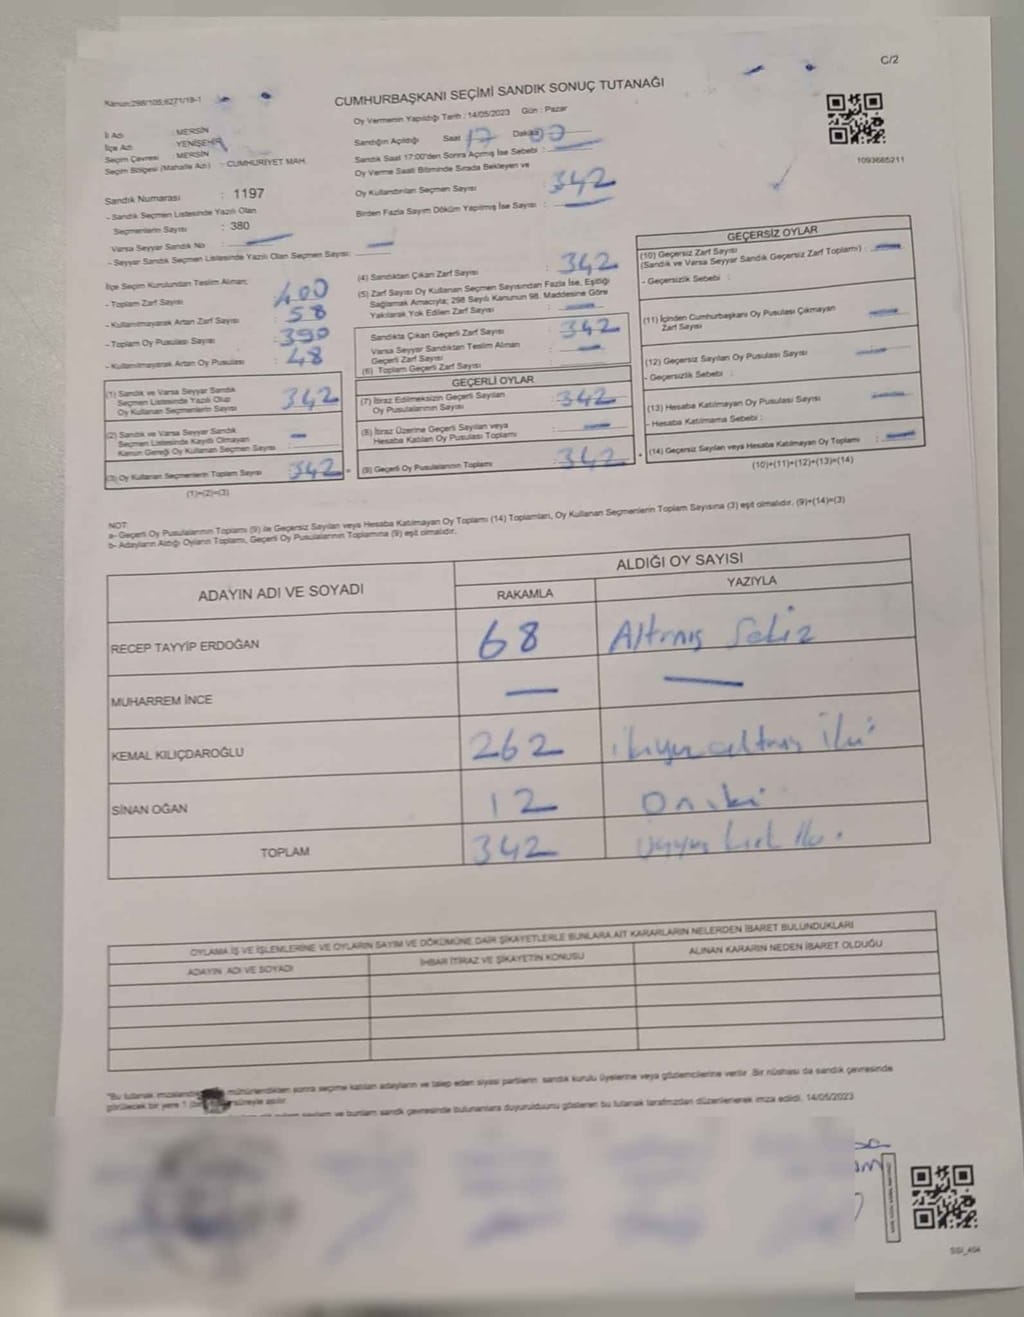 C/2
Kanun:298/105,6271/19-1
CUMHURBAŞKANI SEÇİMİ SANDIK SONUÇ TUTANAĞI
Oy Vermenin Yapıldığı Tarih : 14/05/2023 Gün : Pazar
İl Adı : MERSİN
İlçe Adı : YENİŞEHİR
Seçim Çevresi : MERSİN
Seçim Bölgesi (Mahalle Adı) : CUMHURİYET MAH.
Sandık Numarası : 1197
- Sandık Seçmen Listesinde Yazılı Olan
Seçmenlerin Sayısı : 380
Varsa Seyyar Sandık No :
- Seyyar Sandık Seçmen Listesinde Yazılı Olan Seçmen Sayısı:
Sandığın Açıldığı Saat 17 Dakika 00
Sandık Saat 17:00'den Sonra Açılmış İse Sebebi :
Oy Verme Saati Bitiminde Sırada Bekleyen ve
Oy Kullandırılan Seçmen Sayısı : 342
Birden Fazla Sayım Döküm Yapılmış İse Sayısı :
1093665211
İlçe Seçim Kurulundan Teslim Alınan;
- Toplam Zarf Sayısı : 400
- Kullanılmayarak Artan Zarf Sayısı : 58
- Toplam Oy Pusulası Sayısı : 390
- Kullanılmayarak Artan Oy Pusulası : 48
(1) Sandık ve Varsa Seyyar Sandık
Seçmen Listesinde Yazılı Olup
Oy Kullanan Seçmenlerin Sayısı : 342
(2) Sandık ve Varsa Seyyar Sandık
Seçmen Listesinde Kayıtlı Olmayan
Kanun Gereği Oy Kullanan Seçmen Sayısı : –
(3) Oy Kullanan Seçmenlerin Toplam Sayısı : 342
(1)+(2)=(3)
(4) Sandıktan Çıkan Zarf Sayısı : 342
(5) Zarf Sayısı Oy Kullanan Seçmen Sayısından Fazla İse, Eşitliği
Sağlamak Amacıyla; 298 Sayılı Kanunun 98. Maddesine Göre
Yakılarak Yok Edilen Zarf Sayısı :
Sandıkta Çıkan Geçerli Zarf Sayısı : 342
Varsa Seyyar Sandıktan Teslim Alınan
Geçerli Zarf Sayısı : –
(6) Toplam Geçerli Zarf Sayısı :
GEÇERLİ OYLAR
(7) İtiraz Edilmeksizin Geçerli Sayılan
Oy Pusulalarının Sayısı : 342
(8) İtiraz Üzerine Geçerli Sayılan veya
Hesaba Katılan Oy Pusulası Toplamı :
(9) Geçerli Oy Pusulalarının Toplamı : 342
+
GEÇERSİZ OYLAR
(10) Geçersiz Zarf Sayısı
(Sandık ve Varsa Seyyar Sandık Geçersiz Zarf Toplamı) :
- Geçersizlik Sebebi :
(11) İçinden Cumhurbaşkanı Oy Pusulası Çıkmayan
Zarf Sayısı
(12) Geçersiz Sayılan Oy Pusulası Sayısı
- Geçersizlik Sebebi :
(13) Hesaba Katılmayan Oy Pusulası Sayısı
- Hesaba Katılmama Sebebi :
(14) Geçersiz Sayılan veya Hesaba Katılmayan Oy Toplamı :
(10)+(11)+(12)+(13)=(14)
NOT:
a- Geçerli Oy Pusulalarının Toplamı (9) ile Geçersiz Sayılan veya Hesaba Katılmayan Oy Toplamı (14) Toplamları, Oy Kullanan Seçmenlerin Toplam Sayısına (3) eşit olmalıdır. (9)+(14)=(3)
b- Adayların Aldığı Oyların Toplamı, Geçerli Oy Pusulalarının Toplamına (9) eşit olmalıdır.
ADAYIN ADI VE SOYADI
ALDIĞI OY SAYISI
RAKAMLA YAZIYLA
RECEP TAYYİP ERDOĞAN 68 Altmış Sekiz
MUHARREM İNCE —
KEMAL KILIÇDAROĞLU 262 ikiyüzaltmış iki
SİNAN OĞAN 12 Oniki
TOPLAM 342 üçyüz kırk iki
OYLAMA İŞ VE İŞLEMLERİNE VE OYLARIN SAYIM VE DÖKÜMÜNE DAİR ŞİKAYETLERLE BUNLARA AİT KARARLARIN NELERDEN İBARET BULUNDUKLARI
ADAYIN ADI VE SOYADI İHBAR İTİRAZ VE ŞİKAYETİN KONUSU ALINAN KARARIN NEDEN İBARET OLDUĞU
"Bu tutanak mühürlendikten sonra seçime katılan adayların ve talep eden siyasi partilerin sandık kurulu üyelerine veya gözlemcilerine verilir. Bir nüshası da sandık çevresinde
görülecek bir yere süreyle asılır.
ve bunların sandık çevresinde bulunanlara duyurulduğunu gösteren bu tutanak tarafımızdan düzenlenerek imza edildi. 14/05/2023